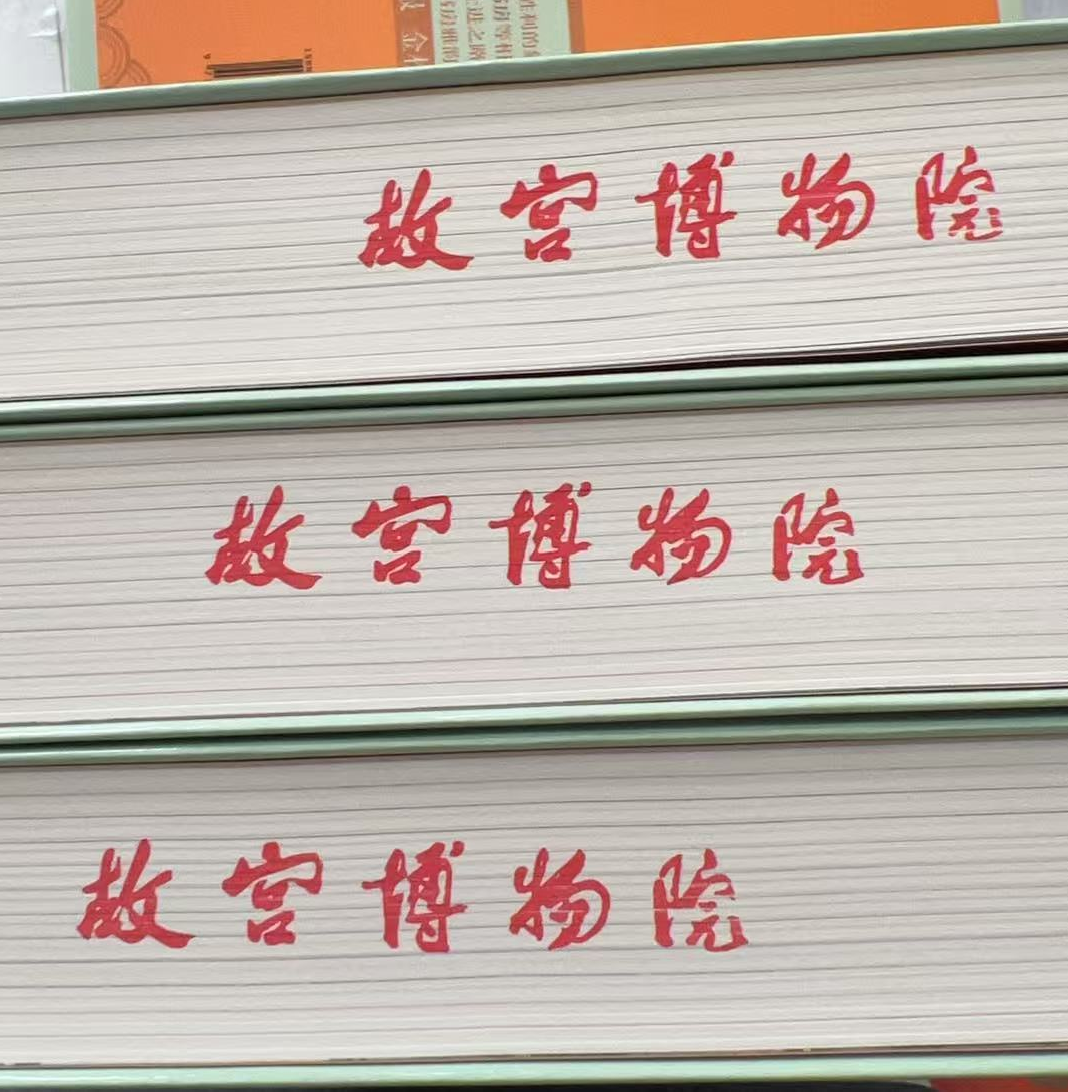 故宫博物院
故宫博物院
故宫博物院